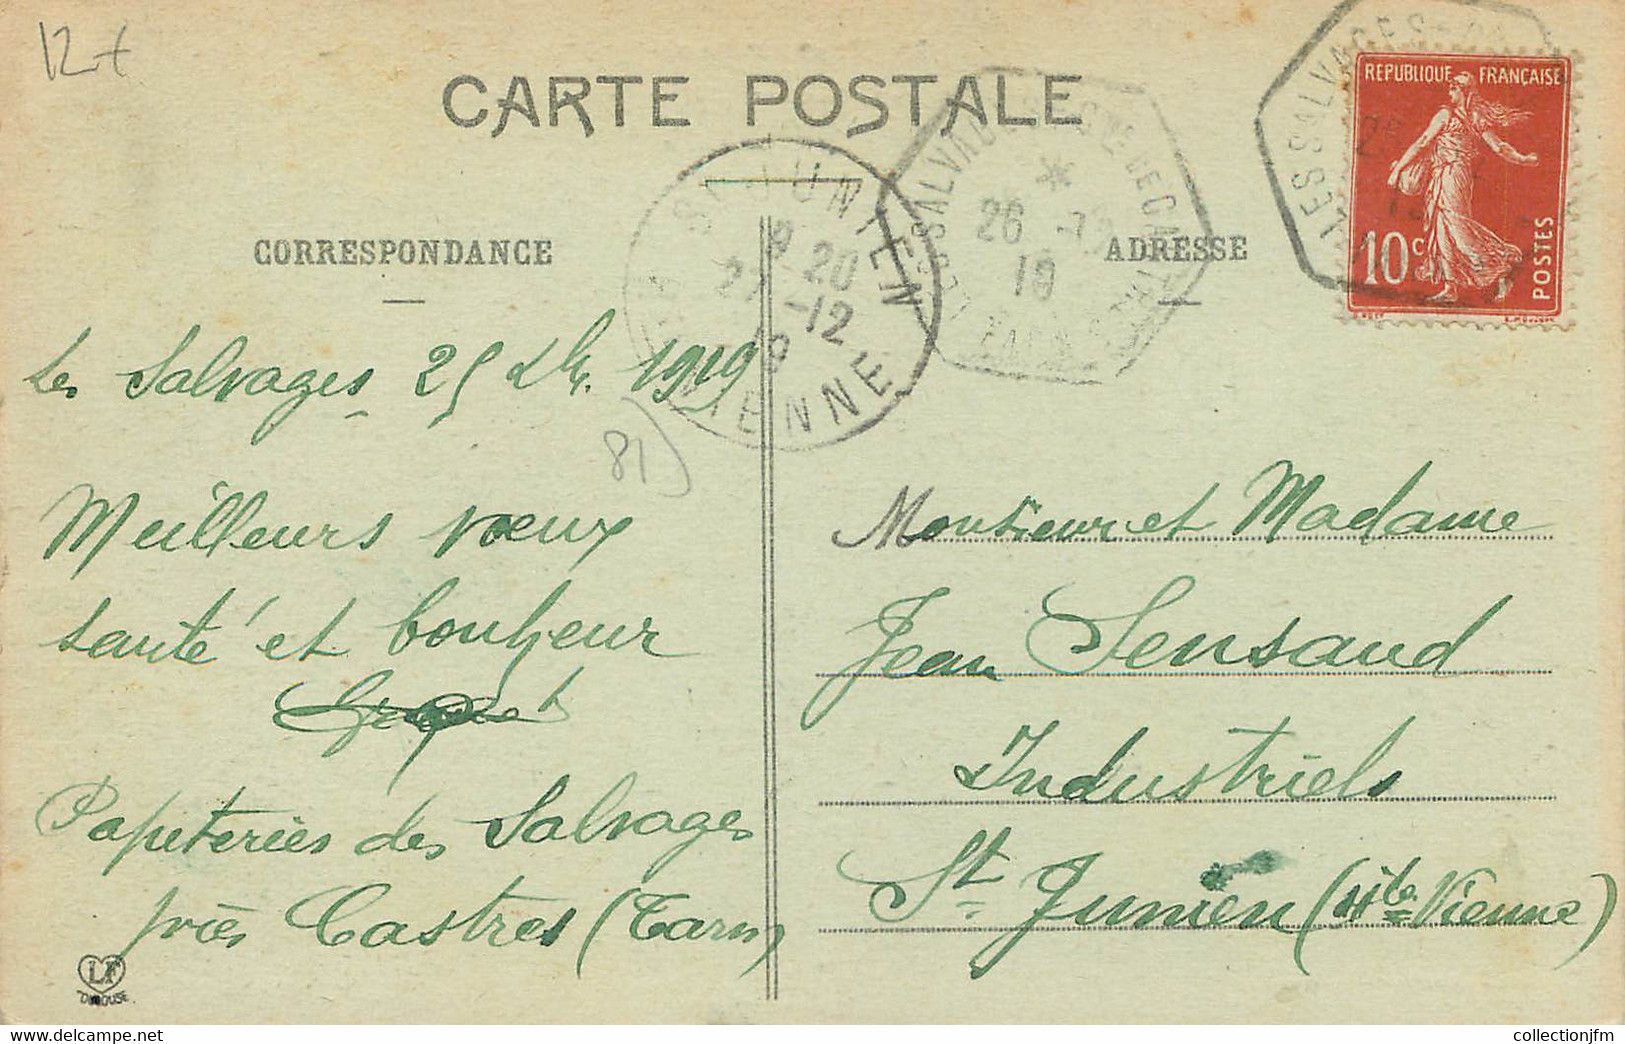 12 +
CARTE POSTALE
CORRESPONDANCE
ADRESSE
REPUBLIQUE FRANÇAISE
10c
POSTES
LES SALVAGES
LES SALVAGES
26 -12
19
ST JUNIEN
8 20
27 -12
19
VIENNE
Les Salvages 25 Dbre 1919
81)
Meilleurs vœux
santé et bonheur
Papeteries des Salvages
près Castres (Tarn)
Monsieur et Madame
Jean Sensaud
Industriels
St Junien (Hte Vienne)
LF
collectionjfm